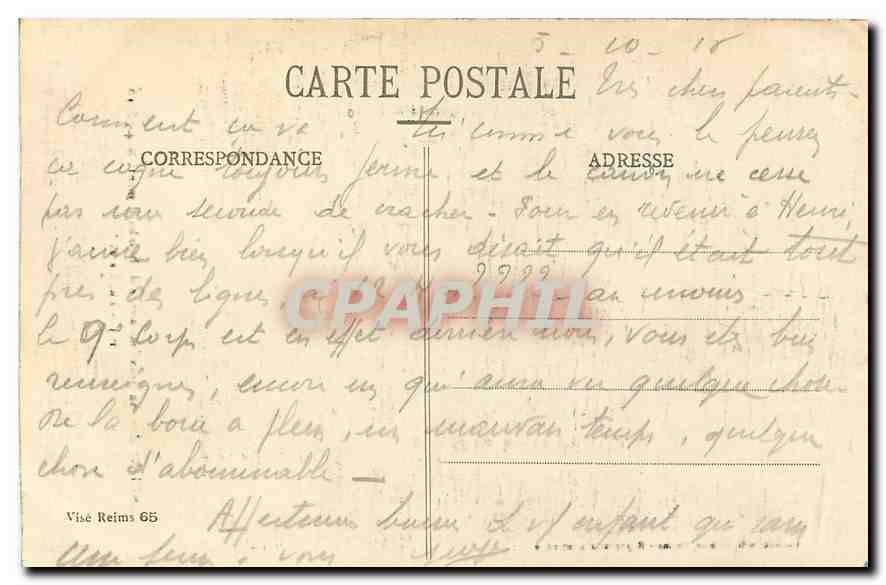 5-10-18
CARTE POSTALE
Très chers parents -
Comment ca va ? comme vous le pensez
CORRESPONDANCE
ADRESSE
ca cogne toujours ferme et le canon ne cesse
pas une seconde de cracher - Pour en revenir à Henri,
j'aime bien lorsqu'il vous disait qu'il était tout
près des lignes à 12 ???? au moins ----
CPAPHIL
le 9e corps est en effet derrière nous, vous etes bien
renseignés, encore un qui aura vu quelque chose
De la boue a plein, un mauvais temps, quelque
chose d'abominable —
Visé Reims 65
Affectueux baiser de vf enfant qui
à vous